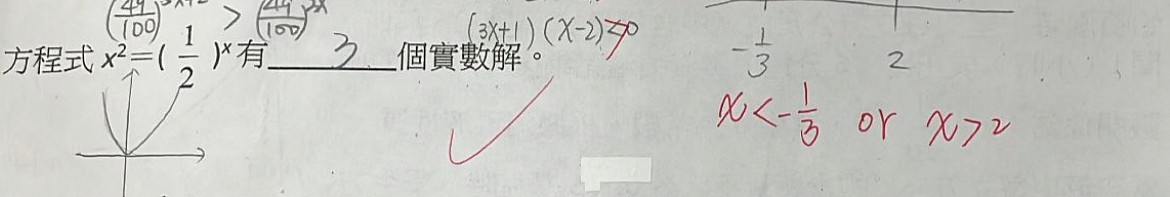 (49/100)^3x+2 > (49/100)^3x
(3x+1)(x-2)>0
方程式 x²=(1/2)^x有 3 個實數解。
-1/3 2
x<-1/3 or x>2